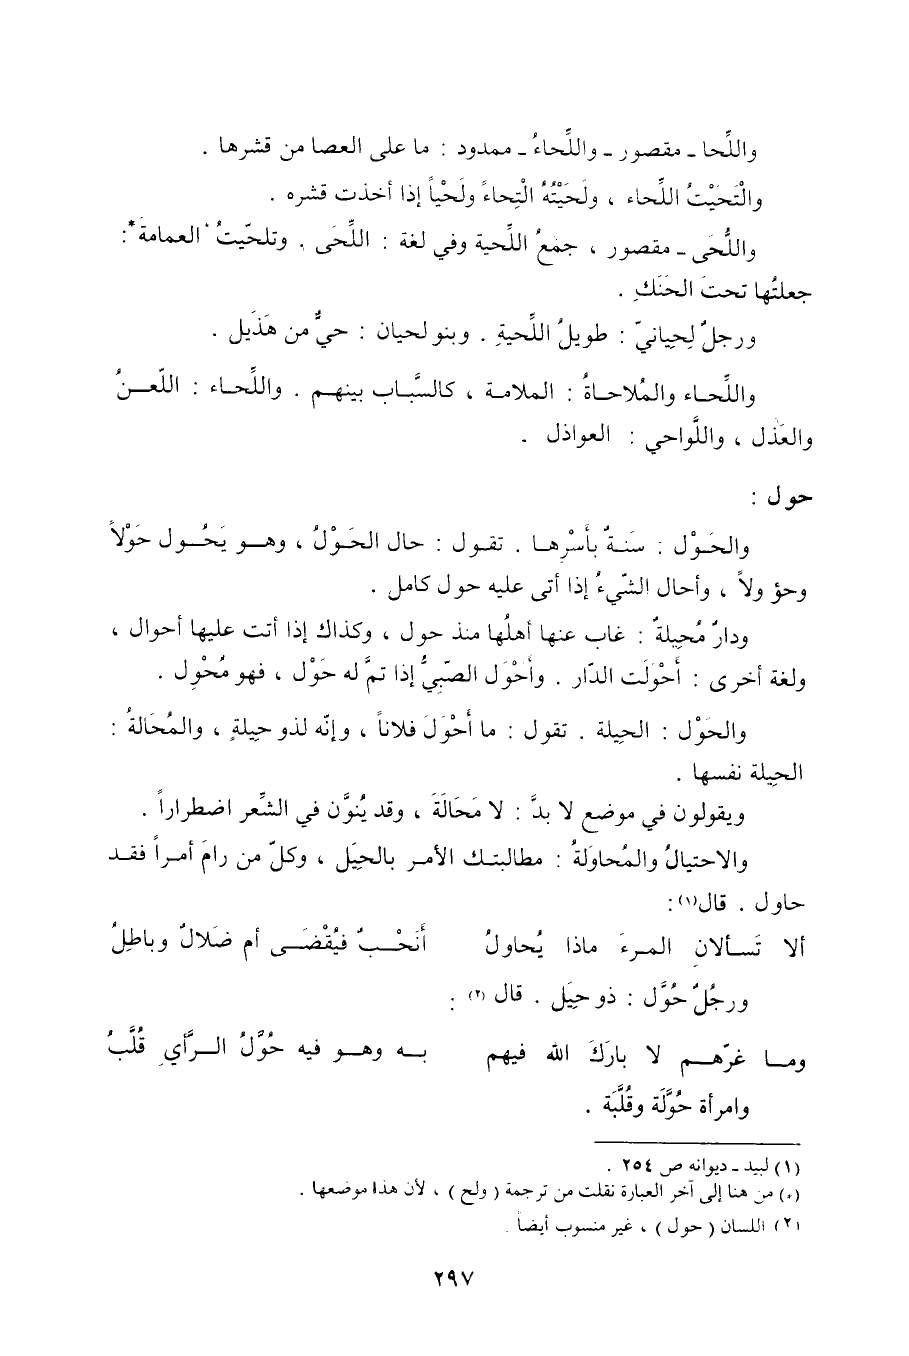 واللِّحا ـ مقصور ـ واللِّحاءُ ـ ممدود : ما على العصا من قشرها .
والْتَحَيْتُ اللِّحاء ، ولَحَيْتُهُ الْتِحاءً ولَحْياً إذا أخذت قشره .
واللُّحَى ـ مقصور ، جمْعُ اللِّحية وفي لغة : اللِّحَى . وتلحّيتُ العمامةَ* :
جعلتُها تحتَ الحَنَكِ .
ورجلٌ لِحيانيّ : طويلُ اللِّحيةِ . وبنو لحيان : حيٌّ من هَذَيل .
واللِّحـاء والمُلاحـاةُ : الملامـة ، كالسِّبـاب بينهـم . واللِّحـاء : اللّعـنُ
والعَذل ، واللَّواحي : العواذل .
حول :
والحَـوْل : سَنَـةٌ بأَسْرِهـا . تقـول : حال الحَـوْلُ ، وهـو يَحُـول حَوْلاً
وحؤ ولاً ، وأحال الشّيءُ إذا أتى عليه حول كامل .
ودارٌ مُحِيلةٌ : غاب عنها أهلُها منذ حول ، وكذاك إذا أتت عليها أحوال ،
ولغة أخرى : أَحْوَلَت الدّار . وأَحْوَل الصّبيُّ إذا تمَّ له حَوْل ، فهو مُحْوِل .
والحَوْل : الحيلة . تقول : ما أَحْوَلَ فلاناً ، وإنّه لذو حيلةٍ ، والمُحَالةُ :
الحيلة نفسها .
ويقولون في موضع لا بدَّ : لا مَحَالَةَ ، وقد يُنوَّن في الشّعر اضطراراً .
والاحتيالُ والمُحاوَلةُ : مطالبتـك الأمـر بالحِيَل ، وكلّ من رامَ أمـراً فقـد
حاول . قال(١) :
ألا تَسـألان المـرءَ ماذا يُحاولُ أَنَحْـبٌ فيُقْضَـى أم ضَلالٌ وباطِلُ
ورجُلٌ حُوَّل : ذو حِيَل . قال (٢) :
ومـا غرّهـم لا بارَكَ الله فيهم بـه وهـو فيه حُوَّلُ الـرَّأيِ قُلَّبُ
وامرأة حُوَّلَة وقُلَّبَة .
(١) لبيد ـ ديوانه ص ٢٥٤ .
(*) من هنا إلى آخر العبارة نقلت من ترجمة ( ولح ) ، لأن هذا موضعها .
(٢) اللسان ( حول ) ، غير منسوب أيضاً .
٢٩٧